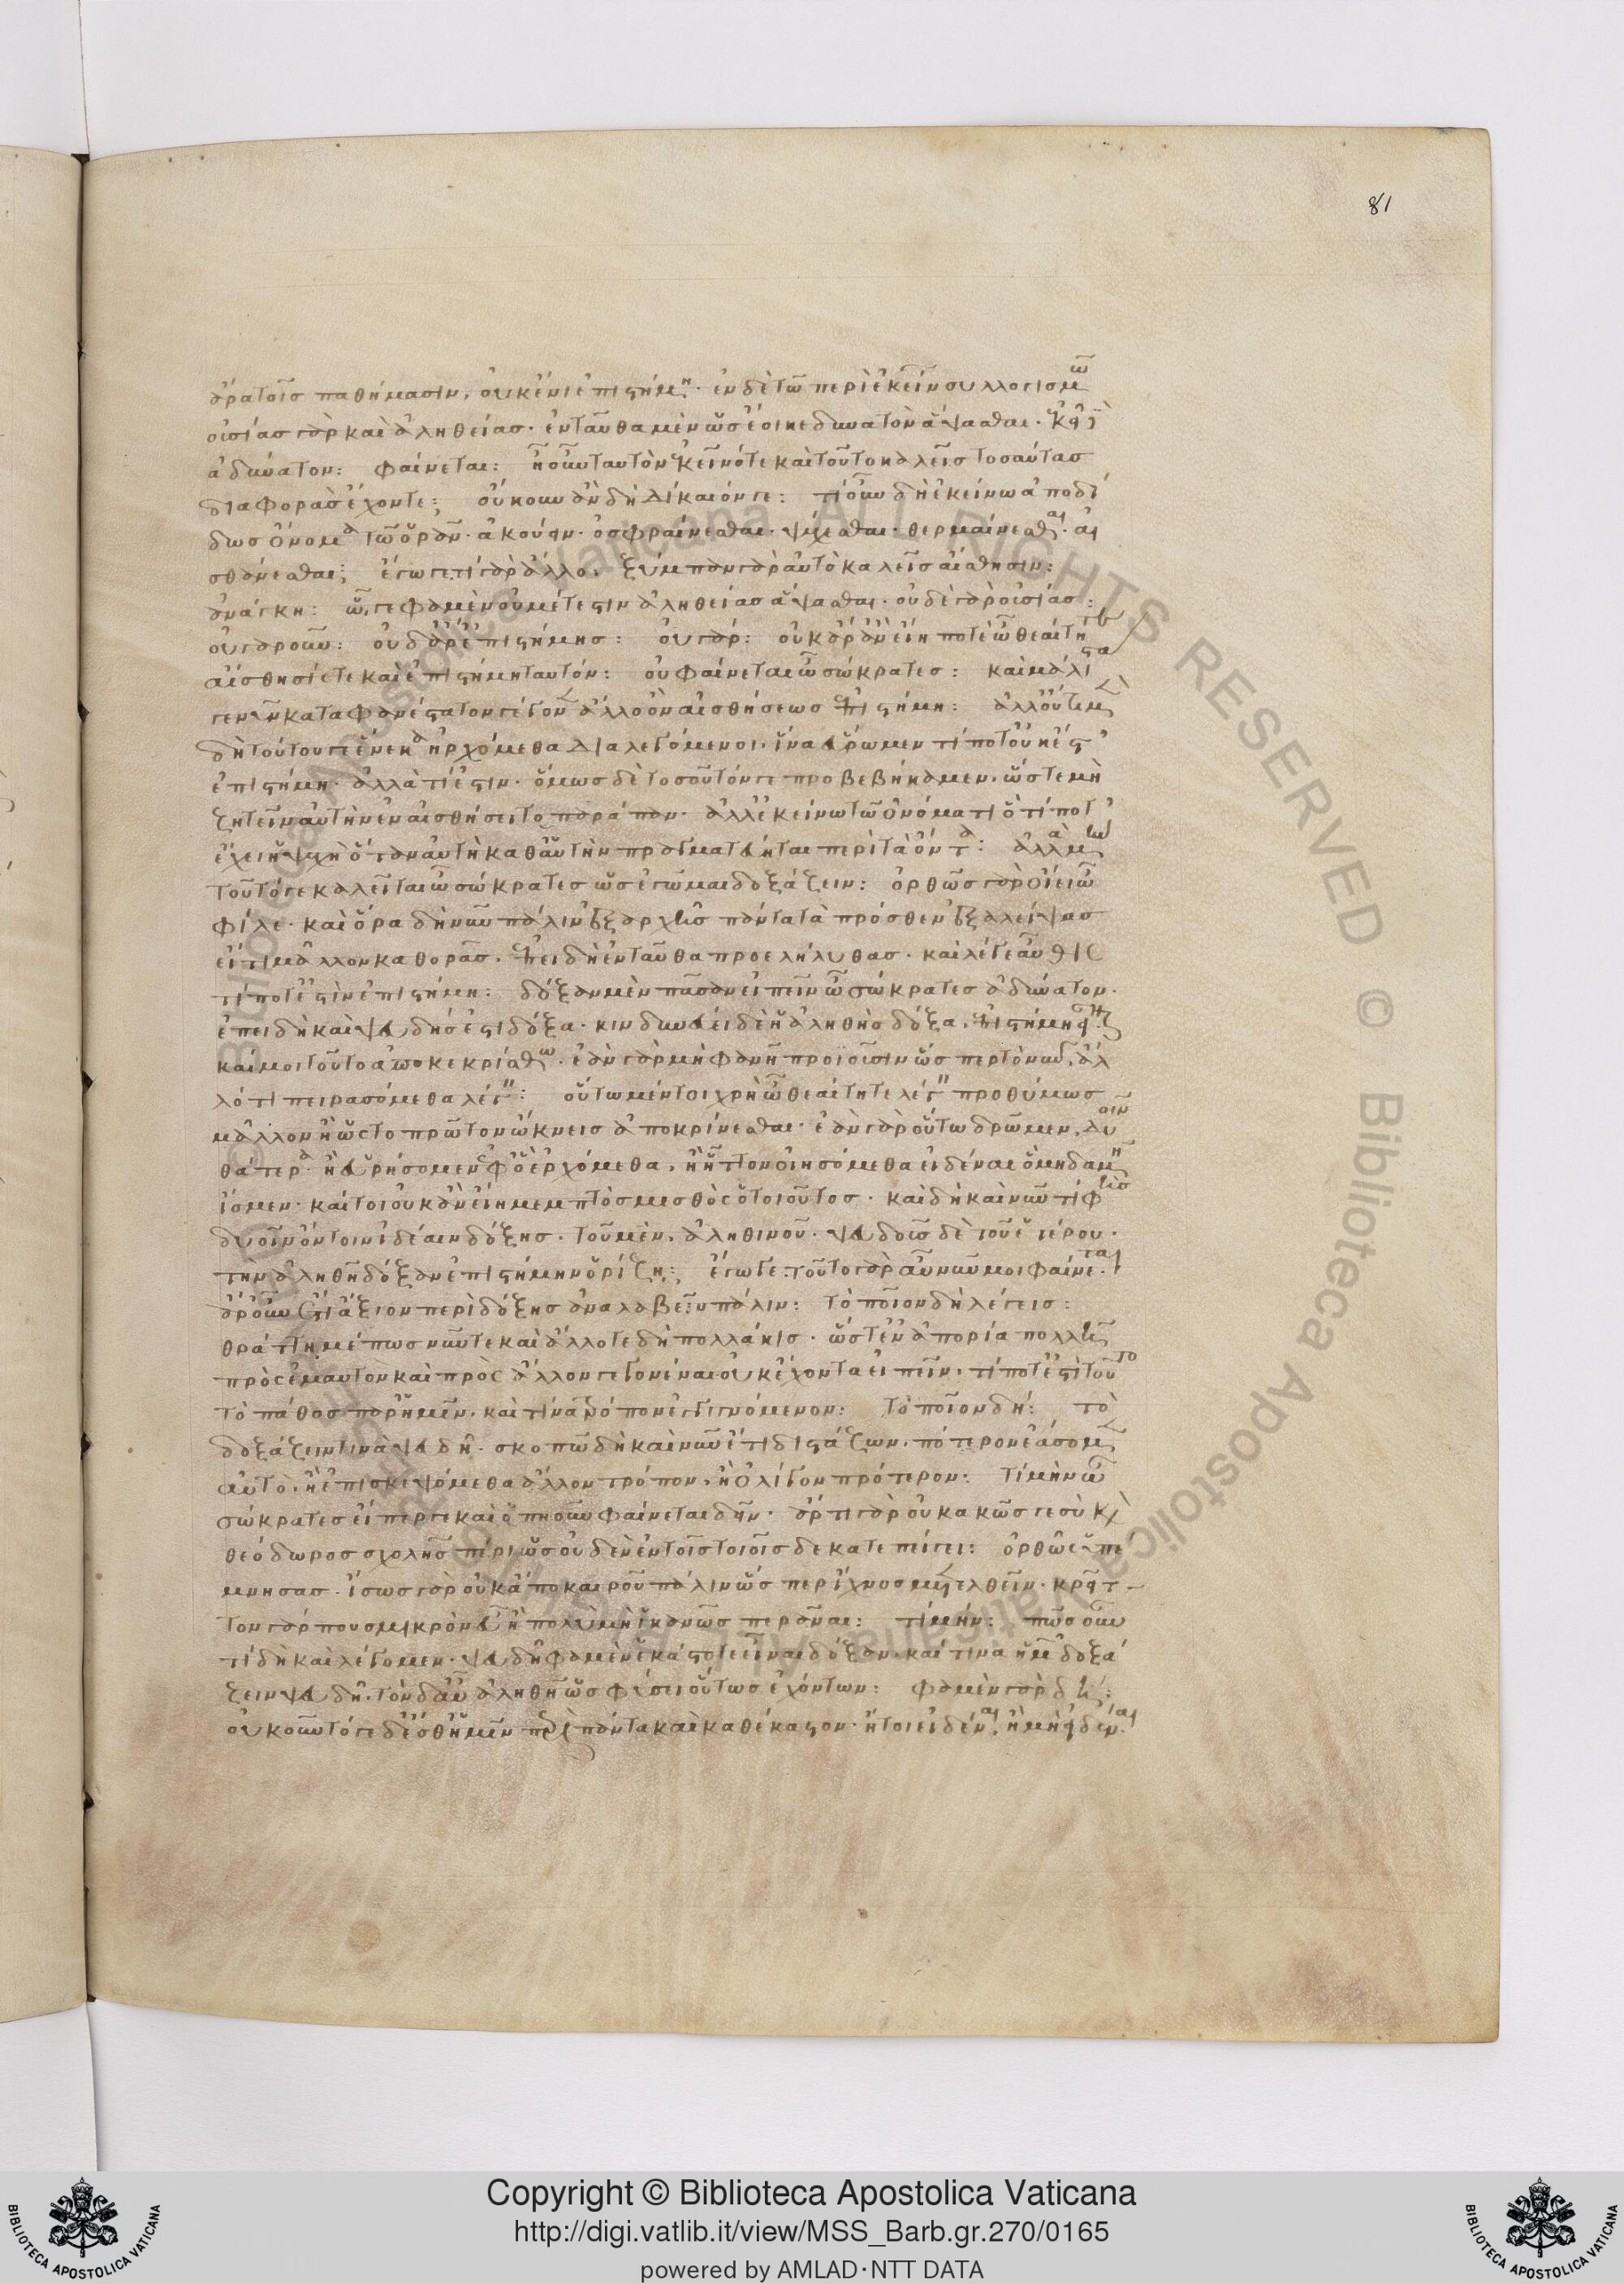 81
ἄρα τοῖς παθήμασιν, οὐκ ἔνι ἐπιστήμη· ἐν δὲ τῶ περὶ ἐκείνων συλλογισμῶ
οὐσίας γὰρ καὶ ἀληθείας· ἐνταῦθα μὲν ὡς ἔοικε δυνατὸν ἅψασθαι· ἐκεῖ δὲ
ἀδύνατον: φαίνεται: ἦ οὖν ταυτὸν ἐκεῖνό τε καὶ τοῦτο καλεῖς τοσαύτας
διαφορὰς ἔχοντε; οὔκουν ἂν δὴ δίκαιόν γε: τί οὖν δὴ ἐκείνω ἀποδί
δως ὄνομα τῶ ὁρᾶν· ἀκούειν· ὀσφραίνεσθαι· ψύχεσθαι· θερμαίνεσθαι· αἰ
σθάνεσθαι; ἔγωγε· τί γὰρ ἄλλο. ξύμπαν γὰρ αὐτὸ καλεῖς αἴσθησιν:
ἀνάγκη: ὧ γέ φαμὲν οὐ μέτεστιν ἀληθείας ἅψασθαι· οὐδὲ γὰρ οὐσίας:
οὐ γὰρ οὖν: οὐδ' ἄρ' ἐπιστήμης: οὐ γάρ: οὐκ ἄρ' ἂν εἴη ποτὲ ὦ θεαίτητε
αἴσθησίς τε καὶ ἐπιστήμη ταυτόν: οὐ φαίνεται ὦ σώκρατες: καὶ μάλιστα
γε νῦν καταφανέστατον γέγονεν ἄλλο ὂν αἰσθήσεως ἐπιστήμη: ἀλλ' οὔτι μὲν
δὴ τούτου γε ἕνεκα ἠρχόμεθα διαλεγόμενοι· ἵνα εὕρωμεν τί ποτ' οὐκ ἔστ'
ἐπιστήμη· ἀλλὰ τί ἔστιν· ὅμως δὲ τοσοῦτόν γε προβεβήκαμεν, ὥστε μὴ
ζητεῖν αὐτὴν ἐν αἰσθήσει τὸ παράπαν· ἀλλ' ἐκείνω τῶ ὀνόματι ὅ τί ποτ'
ἔχει ἡ ψυχὴ ὅταν αὐτὴ καθ' αὑτὴν πραγματεύηται περὶ τὰ ὄντα: ἀλλὰ μὴν
τοῦτό γε καλεῖται ὦ σώκρατες ὡς ἐγὦμαι δοξάζειν: ὀρθῶς γὰρ οἴει ὦ
φίλε· καὶ ὅρα δὴ νῦν πάλιν ἐξ ἀρχῆς πάντα τὰ πρόσθεν ἐξαλείψας
εἴ τι μᾶλλον καθορᾶς, ἐπειδὴ ἐνταῦθα προελήλυθας· καὶ λέγε αὖθις
τί ποτέ ἐστὶν ἐπιστήμη: δόξαν μὲν πᾶσαν εἰπεῖν ὦ σώκρατες ἀδύνατον·
ἐπειδὴ καὶ ψευδής ἐστι δόξα· κινδυνεύει δὲ ἡ ἀληθὴς δόξα, ἐπιστήμη εἶναι
καί μοι τοῦτο ἀποκεκρίσθω· ἐὰν γὰρ μὴ φανῆ προϊοῦσιν ὥσπερ τὸ νῦν, ἄλ
λό τι πειρασόμεθα λέγειν: οὕτω μέντοι χρὴ ὦ θεαίτητε λέγειν προθύμως
μᾶλλον ἢ ὡς τὸ πρῶτον ὤκνεις ἀποκρίνεσθαι· ἐὰν γὰρ οὕτω δρῶμεν, δυοῖν
θάτερα· ἢ εὑρήσομεν ἐφ' ὃ ἐρχόμεθα, ἢ ἧττον οἰησόμεθα εἰδέναι ὃ μηδαμῆ
ἴσμεν· καίτοι οὐκ ἂν εἴη μεμπτὸς μισθὸς ὁ τοιοῦτος· καὶ δὴ καὶ νῦν τί φῆς
δυοῖν ὄντοιν ἰδέαιν δόξης· τοῦ μὲν, ἀληθινοῦ· ψευδοῦς δὲ τοῦ ἑτέρου·
τὴν ἀληθῆ δόξαν ἐπιστήμην ὁρίζη; ἔγωγε: τοῦτο γὰρ αὖ νῦν μοι φαίνεται
ἆρ' οὖν ἔτι ἄξιον περὶ δόξης ἀναλαβεῖν πάλιν: τὸ ποῖον δὴ λέγεις:
θράττει μέ πως νῦν τε καὶ ἄλλοτε δὴ πολλάκις· ὥστ' ἐν ἀπορία πολλῆ
πρὸς ἐμαυτὸν καὶ πρὸς ἄλλον γεγονέναι οὐκ ἔχοντα εἰπεῖν, τί ποτ' ἐστὶ τοῦτο
τὸ πάθος παρ' ἡμῖν, καὶ τίνα τρόπον ἐγγιγνόμενον: τὸ ποῖον δή: τὸ
δοξάζειν τινὰ ψευδῆ· σκοπῶ δὴ καὶ νῦν ἔτι διστάζων, πότερον ἐάσομεν
αὐτὸ, ἢ ἐπισκεψόμεθα ἄλλον τρόπον, ἢ ὀλίγον πρότερον: τί μὴν ὦ
σώκρατες εἴπερ γε καὶ ὁπηοῦν φαίνεται δεῖν· ἄρτι γὰρ οὐ κακῶς γε σὺ καὶ
θεόδωρος σχολῆς πέρι ὡς οὐδὲν ἐν τοῖς τοιοῖσδε κατεπείγει: ὀρθῶς ὑπέ
μνησας· ἴσως γὰρ οὐκ ἀπὸ καιροῦ πάλιν ὥσπερ ἴχνος μετελθεῖν· κρεῖτ
τον γάρ που σμικρὸν εὖ ἢ πολὺ μὴ ἱκανῶς περᾶναι: τί μήν: πῶς οὖν
τί δὴ καὶ λέγομεν· ψευδῆ φαμὲν ἑκάστοτε εἶναι δόξαν, καί τινα ἡμῶν δοξά
ζειν ψευδῆ· τὸν δ' αὖ ἀληθῆ ὡς φύσει οὕτως ἐχόντων: φαμὲν γὰρ δή:
οὐκοῦν τόδε γ' ἔσθ' ἡμῖν περὶ πάντα καὶ καθ' ἕκαστον· ἤτοι εἰδέναι, ἢ μὴ εἰδέναι·
Copyright © Biblioteca Apostolica Vaticana
http://digi.vatlib.it/view/MSS_Barb.gr.270/0165
powered by AMLAD·NTT DATA